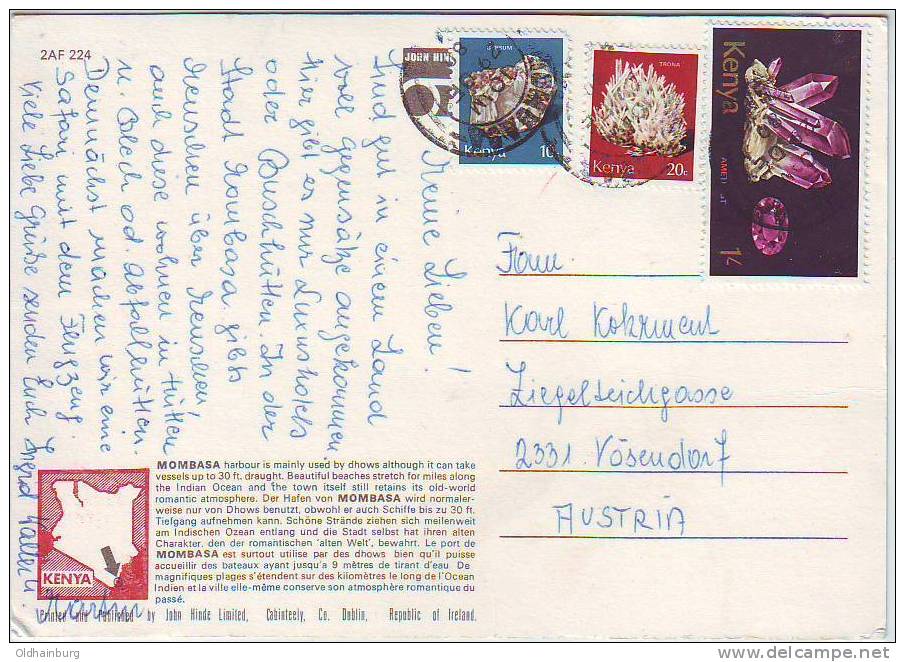 2AF 224
JOHN HIN
GYPSUM
Kenya 10c
TRONA
Kenya 20c
Kenya
AMETHYST
1/-
Meine Lieben!
Sind gut in einem Land
voll gegensätze angekommen
hier gibt es nur Luxushotels
oder Buschhütten. In der
Stadt Mombasa gibts
Menschen über Menschen
auch diese wohnen in Hütten
u. Blech od. Abfallhütten.
Demnächst machen wir eine
Safari mit dem Flugzeug.
Viele Liebe Grüße senden Euch Ingrid
Fam.
Karl Kokrment
Ziegelteichgasse
2331 Vösendorf
AUSTRIA
KENYA
MOMBASA harbour is mainly used by dhows although it can take
vessels up to 30 ft. draught. Beautiful beaches stretch for miles along
the Indian Ocean and the town itself still retains its old-world
romantic atmosphere. Der Hafen von MOMBASA wird normaler-
weise nur von Dhows benutzt, obwohl er auch Schiffe bis zu 30 ft.
Tiefgang aufnehmen kann. Schöne Strände ziehen sich meilenweit
am Indischen Ozean entlang und die Stadt selbst hat ihren alten
Charakter, den der romantischen 'alten Welt', bewahrt. Le port de
MOMBASA est surtout utilise par des dhows bien qu'il puisse
accueillir des bateaux ayant jusqu'a 9 mètres de tirant d'eau. De
magnifiques plages s'étendent sur des kilomètres le long de l'Ocean
Indien et la ville elle-même conserve son atmosphère romantique du
passé.
Printed and Published by John Hinde Limited, Cabinteely, Co. Dublin, Republic of Ireland.
Oldhainburg
delcampe.net